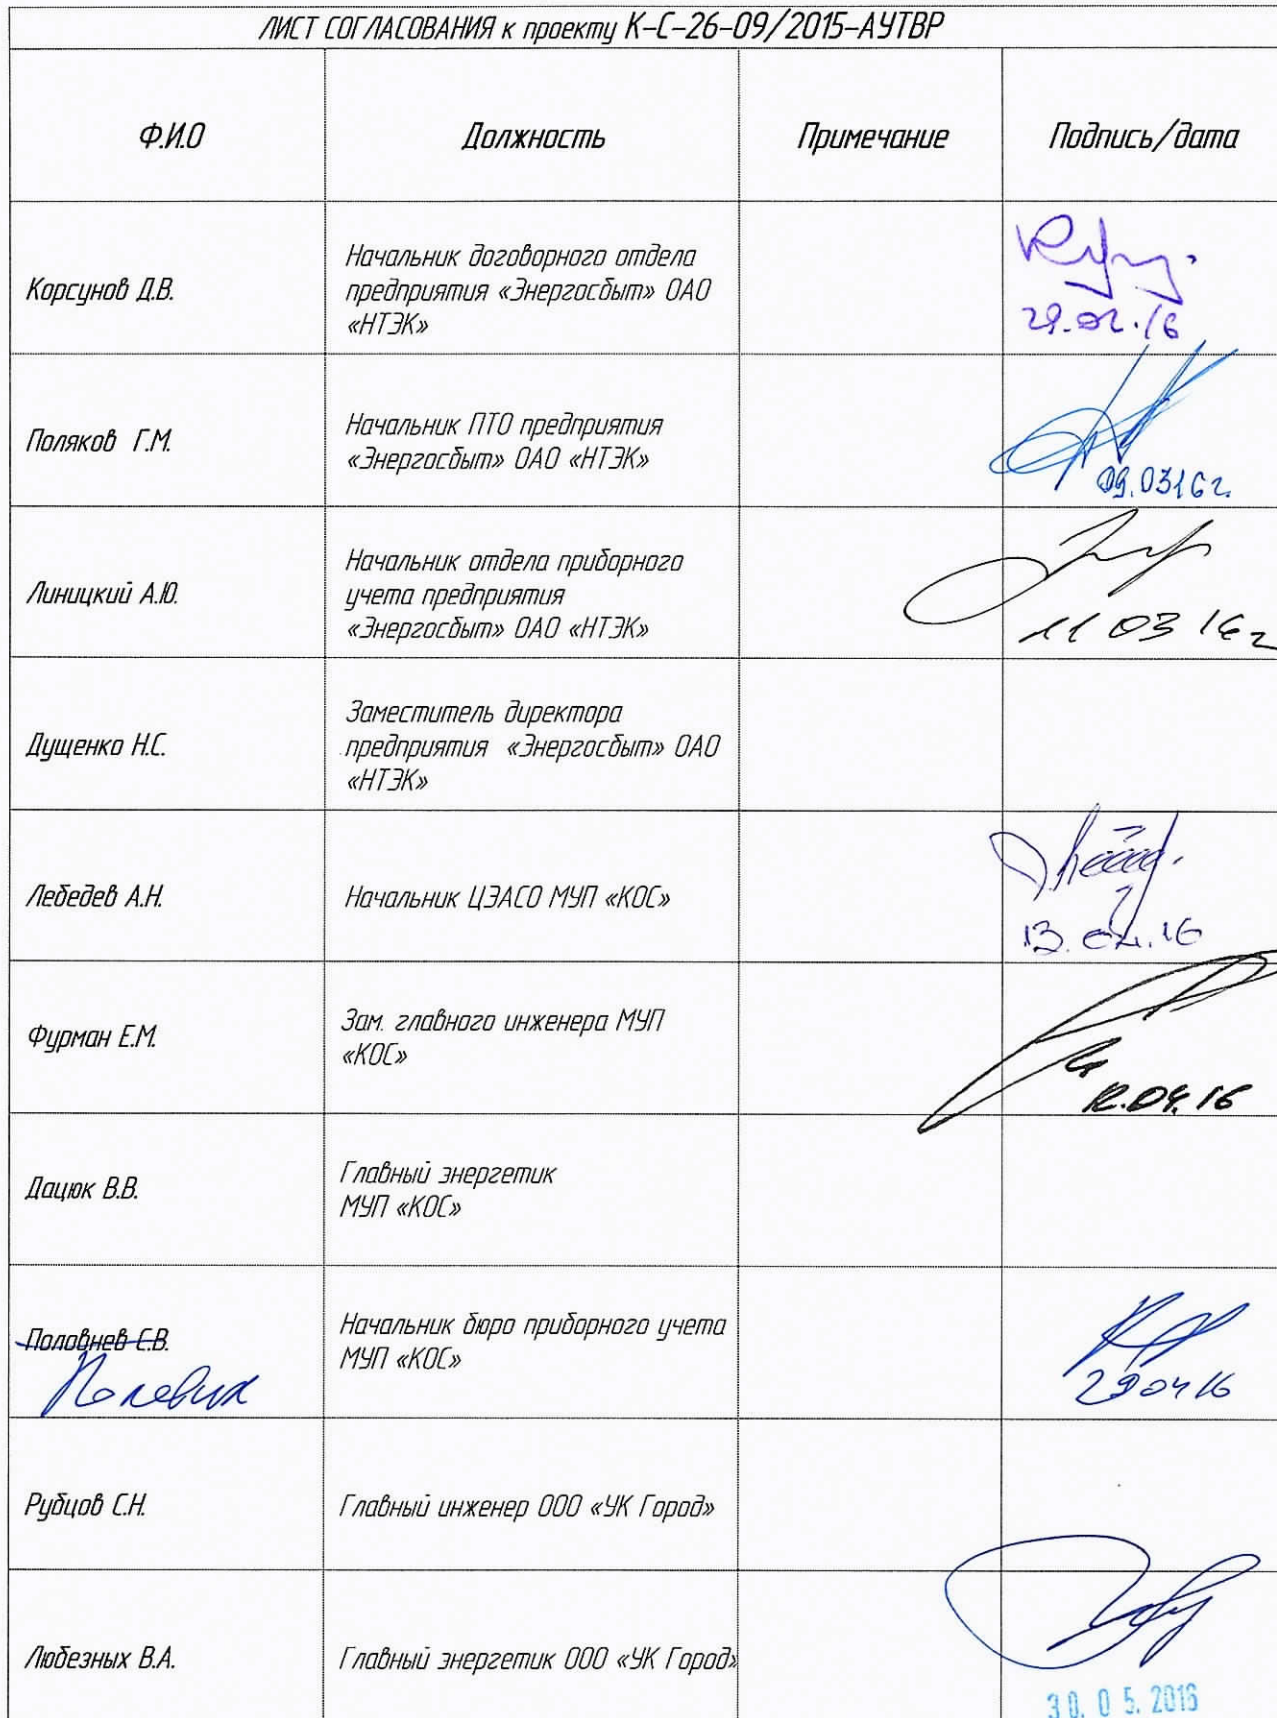 ЛИСТ СОГЛАСОВАНИЯ к проекту К-С-26-09/2015-АУТВР
Ф.И.О Должность Примечание Подпись/дата
Корсунов Д.В.
Начальник договорного отдела
предприятия «Энергосбыт» ОАО
«НТЭК»
29.02.16
Поляков Г.М.
Начальник ПТО предприятия
«Энергосбыт» ОАО «НТЭК»
09.0316г.
Линицкий А.Ю.
Начальник отдела приборного
учета предприятия
«Энергосбыт» ОАО «НТЭК»
11 03 16г
Дущенко Н.С.
Заместитель директора
предприятия «Энергосбыт» ОАО
«НТЭК»
Лебедев А.Н.
Начальник ЦЭАСО МУП «КОС»
13.04.16
Фурман Е.М.
Зам. главного инженера МУП
«КОС»
12.04.16
Дацюк В.В.
Главный энергетик
МУП «КОС»
Половнев С.В.
Начальник бюро приборного учета
МУП «КОС»
290416
Рубцов С.Н.
Главный инженер ООО «УК Город»
Любезных В.А.
Главный энергетик ООО «УК Город»
30.05.2016